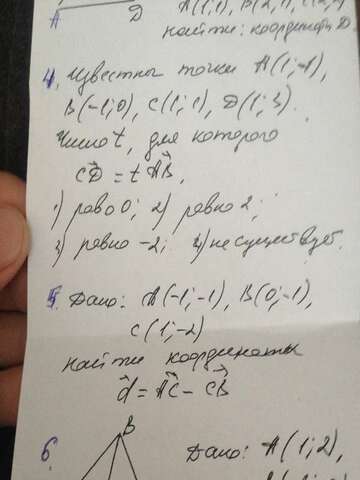 A D A(1;1), B(2;1), C(
найти: координаты D.
4. Известны точки A(1;-1),
B(-1;0), C(1;1), D(1;3).
Число t, для которого
CD = t AB,
1) равно 0; 2) равно 2;
3) равно -2; 4) не существует.
5. Дано: A(-1;-1), B(0;-1),
C(1;-2)
найти координаты
d = AC - CB
6. B Дано: A(1;2),